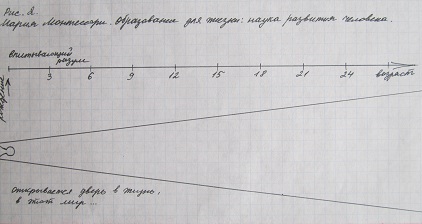 Рис. 2.
Мария Монтессори. Образование для жизни: наука развития человека.
впитывающий
разум
3 6 9 12 15 18 21 24 возраст
рождение
открывается дверь в жизнь,
в этот мир...